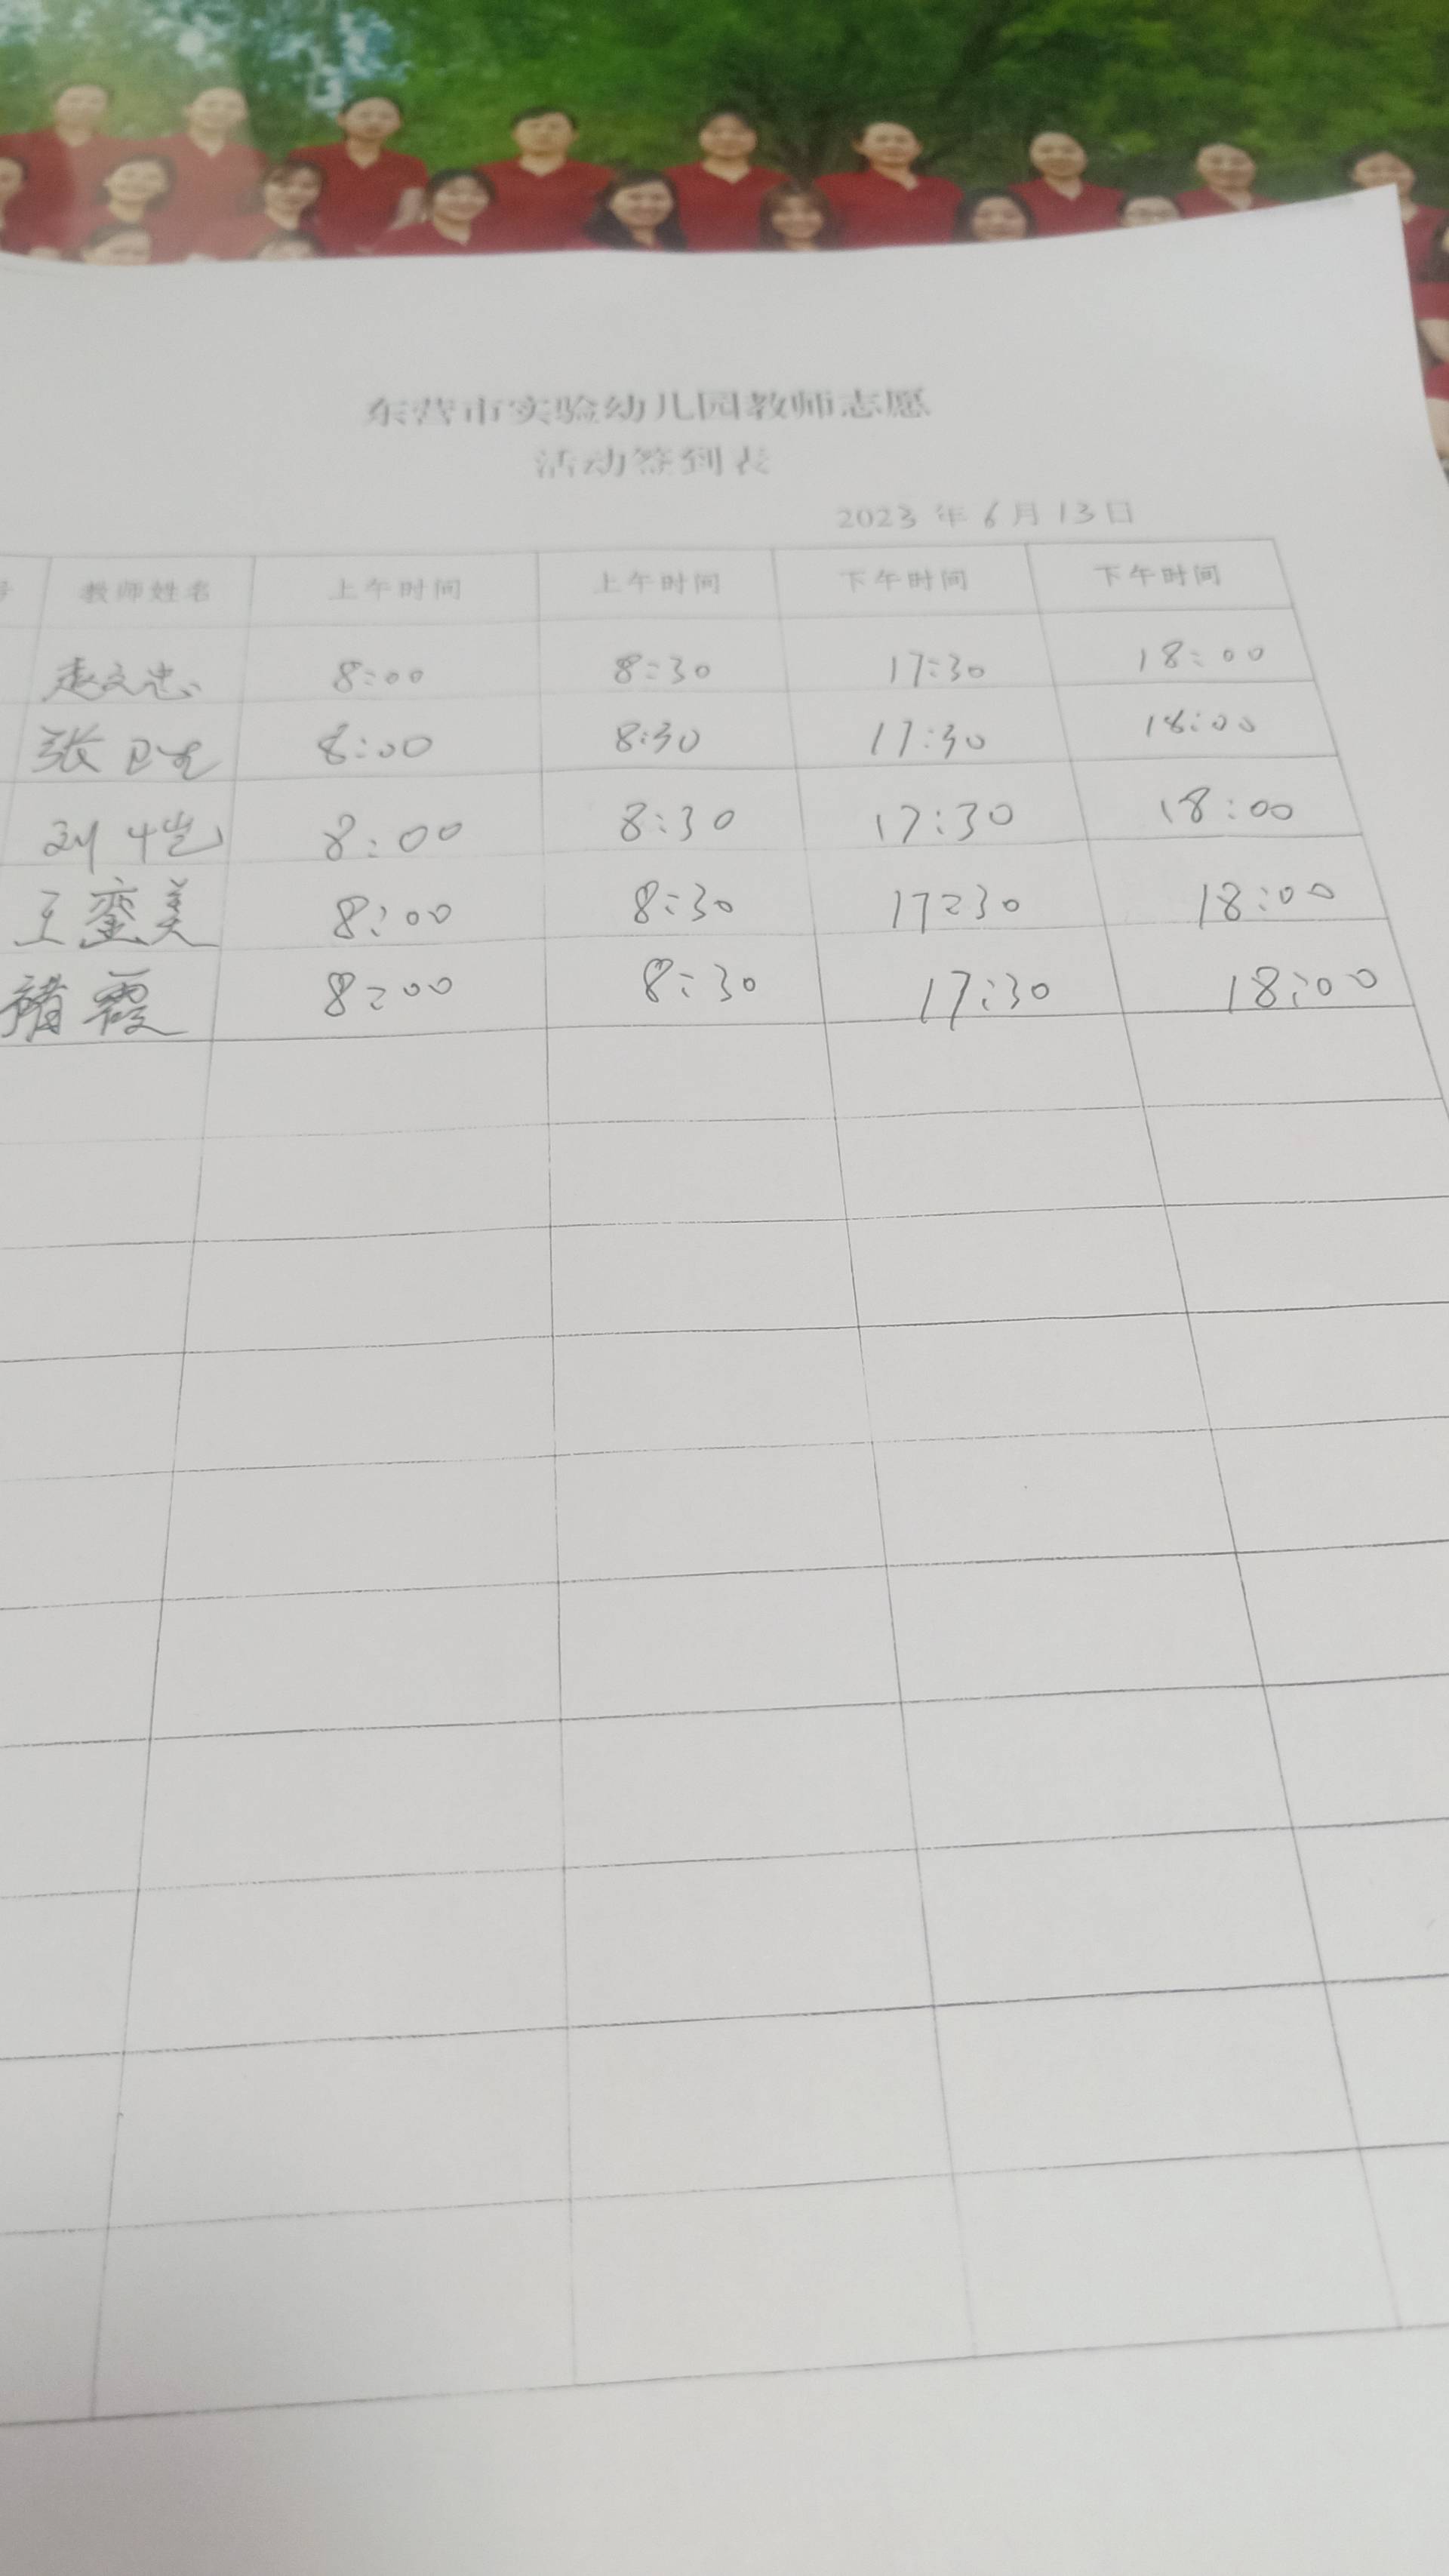 东营市实验幼儿园教师志愿
活动签到表
2023 年 6 月 13 日
号 教师姓名 上午时间 上午时间 下午时间 下午时间
赵文忠 8:00 8:30 17:30 18:00
张卫光 8:00 8:30 17:30 18:00
刘 8:00 8:30 17:30 18:00
王蛮美 8:00 8:30 17:30 18:00
褚霞 8:00 8:30 17:30 18:00